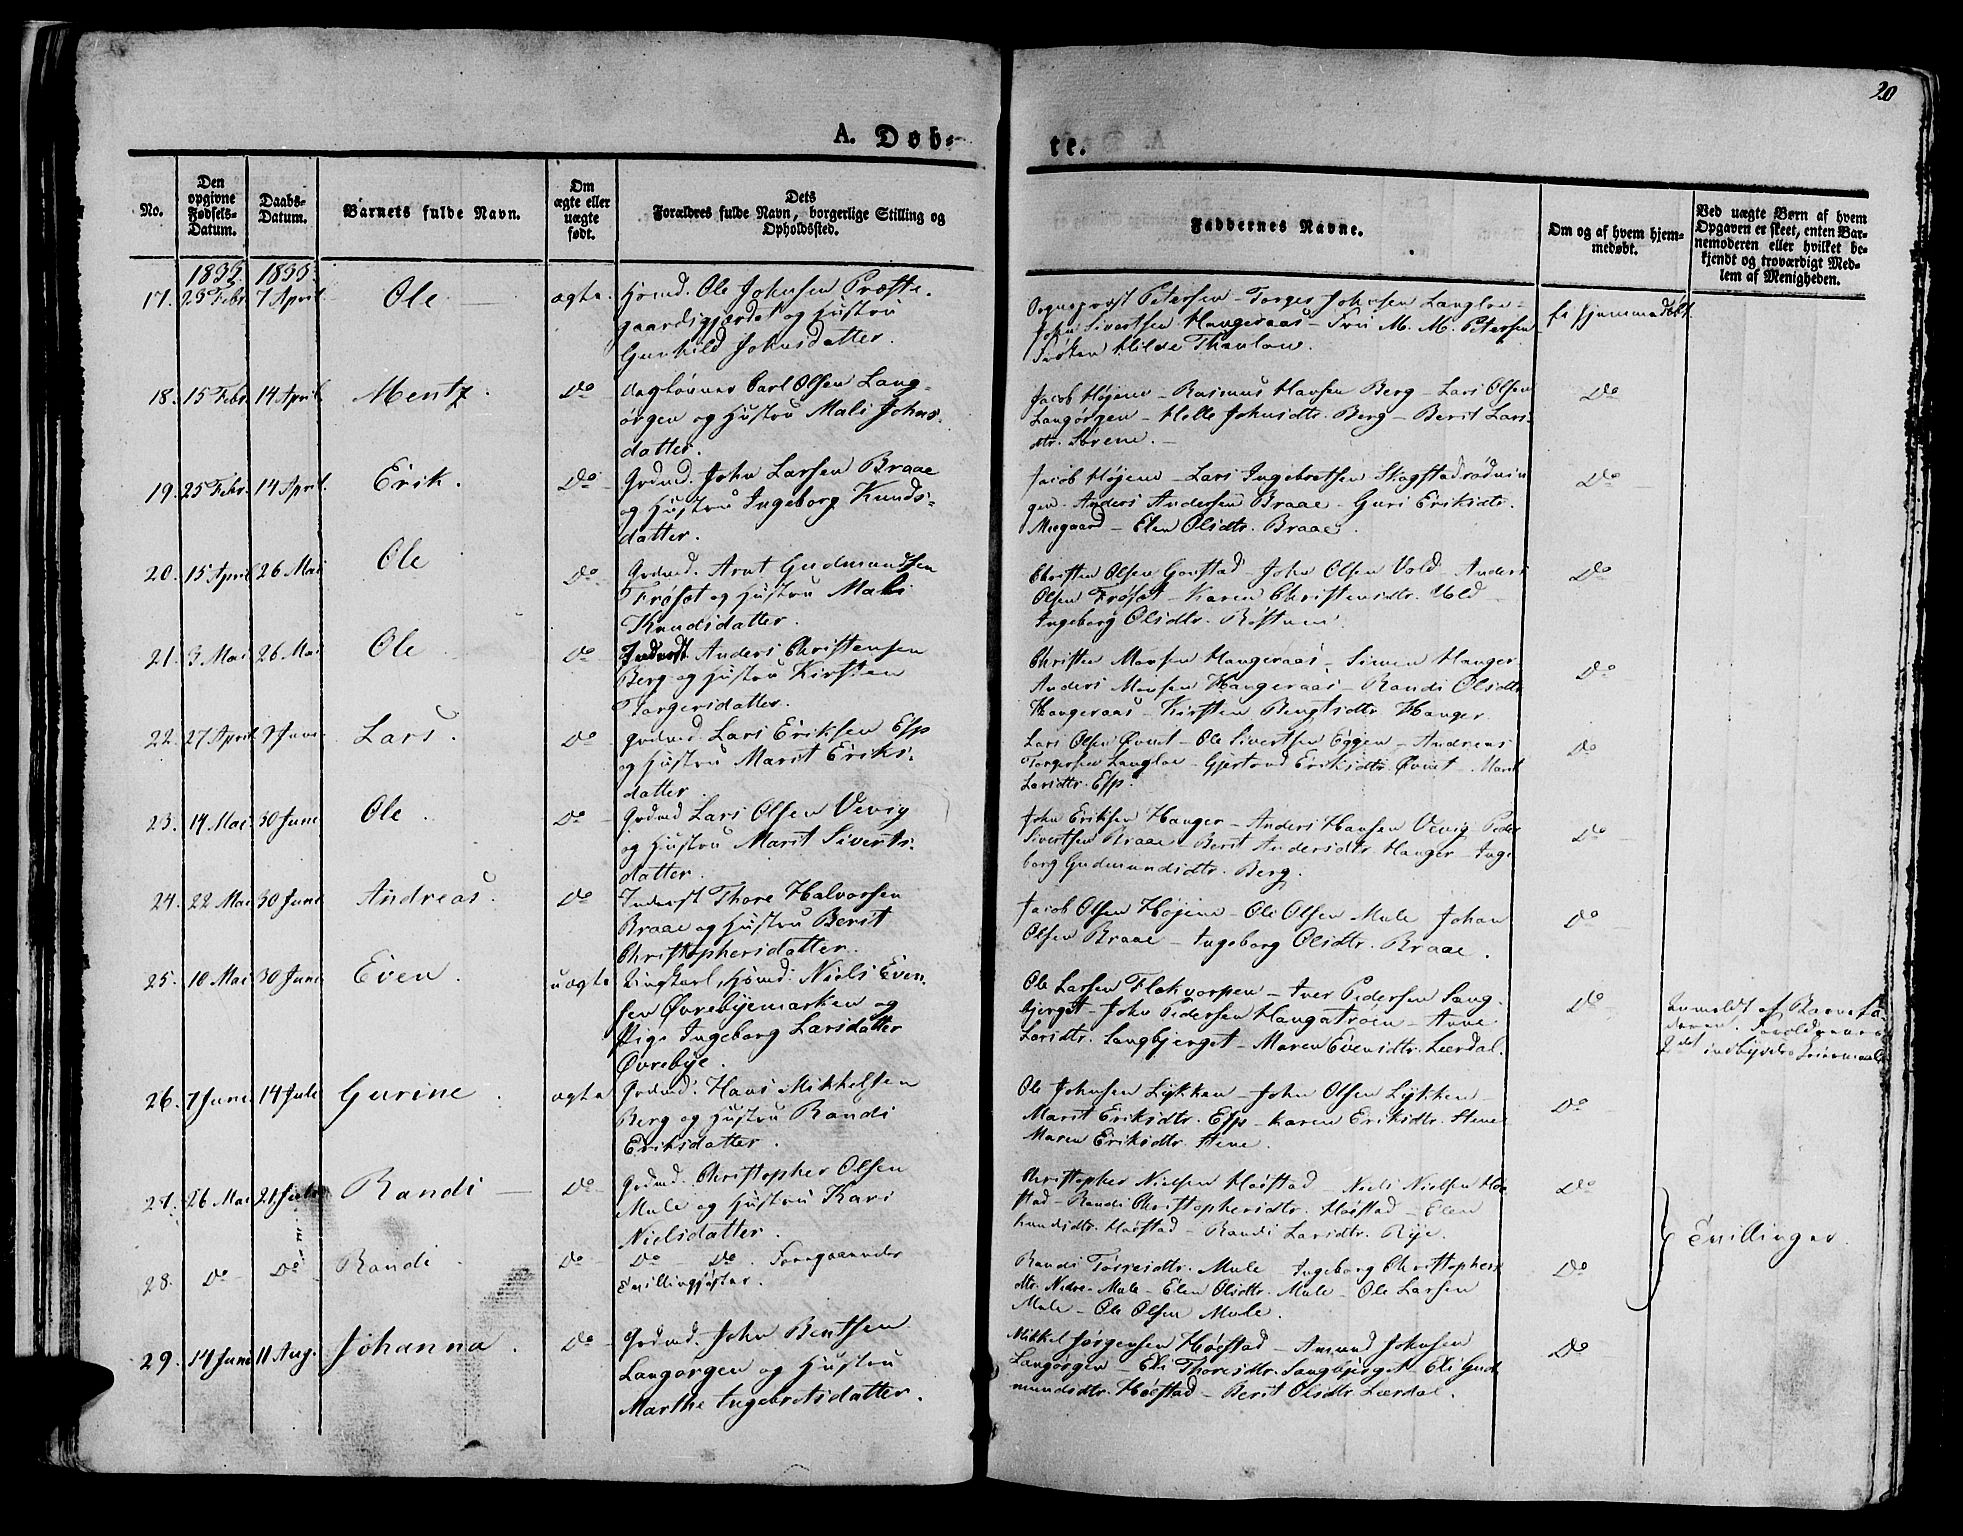 20
A. Døb-
te.
No.
Den
opgivne
Fødsels-
Datum.
Daabs-
Datum.
Barnets fulde Navn.
Om
ægte eller
uægte
født.
Dets
Forældres fulde Navn, borgerlige Stilling og
Opholdssted.
Faddernes Navne.
Om og af hvem hjem-
medøbt.
Ved uægte Børn af hvem
Opgaven er skeet, enten Bar-
nemoderen eller hvilket be-
kjendt og troværdigt Med-
lem af Menigheden.
1833 1833
17. 23 Febr. 7 April Ole ægte Huusmd. Ole Johnsen Præste-
gaardsgjerdet og Hustru
Gunhild Johnsdatter.
Sogneprest Petersen - Torger Johnsen Langloe -
John Sivertsen Haugeraas - Fru M. M. Petersen
Frøken Hilde Thaulow.
ei hjemmedøbt
18. 15 Febr. 14 April Mentz. Do Daglønner Carl Olsen Lang-
ørgen og Hustru Mali Johns-
datter.
Jacob Højene - Rasmus Hansen Berg - Lars Olsen
Langørgen - Helle Johnsdtr. Berg - Berit Lars-
dtr. Sørene. -
Do
19. 25 Febr. 14 April. Erik. Do Grdmd. John Larsen Braae
og Hustru Ingeborg Knuds-
datter.
Jacob Højene - Lars Ingebretsen Skogstadrødnin
gen - Anders Andersen Braae - Guri Eriksdtr.
Moegaard - Elen Olsdtr. Braae.
Do
20. 15 April 26 Mai Ole Do Grdmd. Arnt Gudmundsen
Frøset og Hustru Mali
Knudsdatter.
Christen Olsen Gorstad - John Olsen Vold - Anders
Olsen Frøset - Karen Christensdtr. Vold -
Ingeborg Olsdtr. Røstum.
Do
21. 3 Mai 26 Mai Ole Do Inderst Anders Christensen
Berg og Hustru Kirsten
Torgersdatter.
Christen Monsen Haugeraas - Simen Hanger
Anders Monsen Haugeraas - Randi Olsdtr.
Haugeraas - Kirsten Bengtsdtr. Hanger.
Do
22. 27 April 9 Juni Lars. Do Grdmd Lars Eriksen Esp
og Hustru Marit Eriks-
datter.
Lars Olsen Qvint - Ole Sivertsen Eggen - Andreas
Torgersen Langloe - Gjertrud Eriksdtr. Qvint - Marit
Larsdtr. Esp.
Do
23. 14 Mai 30 Juni Ole. Do Grdmd Lars Olsen Vevig
og Hustru Marit Siverts-
datter.
John Eriksen Hanger - Anders Hansen Vevig Peder
Sivertsen Braae - Berit Andersdtr. Hanger - Inge
borg Gudmundsdtr. Berg.
Do
24. 22 Mai 30 Juni Andreas. Do Inderst Thore Halvorsen
Braae og Hustru Berit
Christophersdatter.
Jacob Olsen Højene - Ole Olsen Mule Johan
Olsen Braae - Ingeborg Olsdtr. Braae.
Do
25. 10 Mai 30 Juni Even. uægte Ungkarl, Huusmd. Niels Even-
sen Øvrebyemarken og
Pige Ingeborg Larsdatter
Øvrebye.
Ole Larsen Flakvorpen - Iver Pedersen Lang-
bjerget - John Pedersen Haugatrøen - Anne
Larsdtr. Langbjerget - Maren Evensdtr. Leerdal.
Do
Anmeldt af Barnefa-
deren. Forældrenes
indbyrdes Leiermaal
26. 7 Juni 14 Juli Gurine. ægte Grdmd. Hans Mikkelsen
Berg og Hustru Randi
Eriksdatter.
Ole Johnsen Lykken - John Olsen Lykken -
Marit Eriksdtr. Esp - Karen Eriksdtr. Stene
Maren Eriksdtr. Stene.
Do
27. 26 Mai 21 Juli Randi Do Grdmd. Christopher Olsen
Mule og Hustru Kari
Nielsdatter.
Christopher Nielsen Høistad - Niels Nielsen Høi
stad - Randi Christophersdtr. Høistad - Elen
Knudsdtr. Høistad - Randi Larsdtr. Rye.
Do
Tvillinger.
28. Do Do Randi. Do Do Do. Foregaaendes
Tvillingsøster.
Randi Torresdtr. Mule - Ingeborg Christophers
dtr. Nedre-Mule - Elen Olsdtr. Mule - Ole Larsen
Mule - Ole Olsen Mule.
Do
29. 14 Juni 11 Aug. Johanna. Do Grdmd. John Bentsen
Langørgen og Hustru
Marthe Ingebretsdatter.
Mikkel Jørgensen Høistad - Amund Johnsen
Langørgen - Eli Thoresdtr. Langbjerget - Eli Gud
mundsdtr. Høistad - Berit Olsdtr. Lerdal.
Do